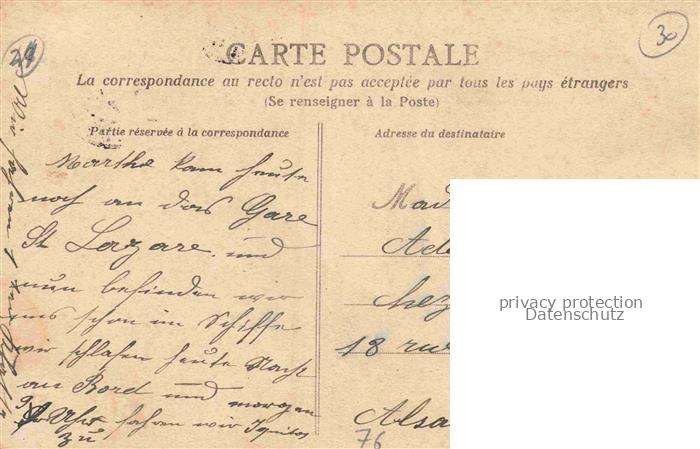 24
30
CARTE POSTALE
La correspondance au recto n'est pas acceptée par tous les pays étrangers
(Se renseigner à la Poste)
Partie réservée à la correspondance
Adresse du destinataire
Marthe kam heute
noch an das Gare
St Lazare und
nun befinden wir
uns schon im Schiffe
wir schlafen heute Nacht
an Bord und morgen
9 Uhr fahren wir
zu
Mad
Ade
chez
18 rue
Alsa
76
privacy protection
Datenschutz